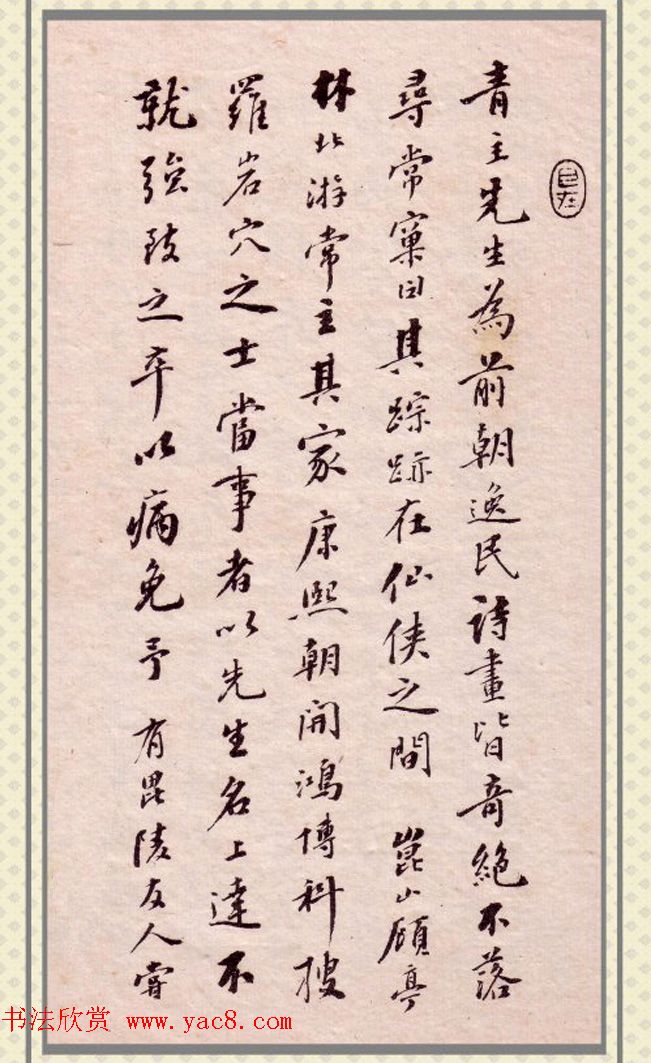 青主先生為前朝逸民詩畫皆奇絕不落
尋常窠臼其踪跡在仙俠之間 崑山顧亭
林北游常主其家康熙朝開鴻博科搜
羅岩穴之士當事者以先生名上達不
就強致之卒以病免予 有毘陵友人嘗
书法欣赏 www.yac8.com